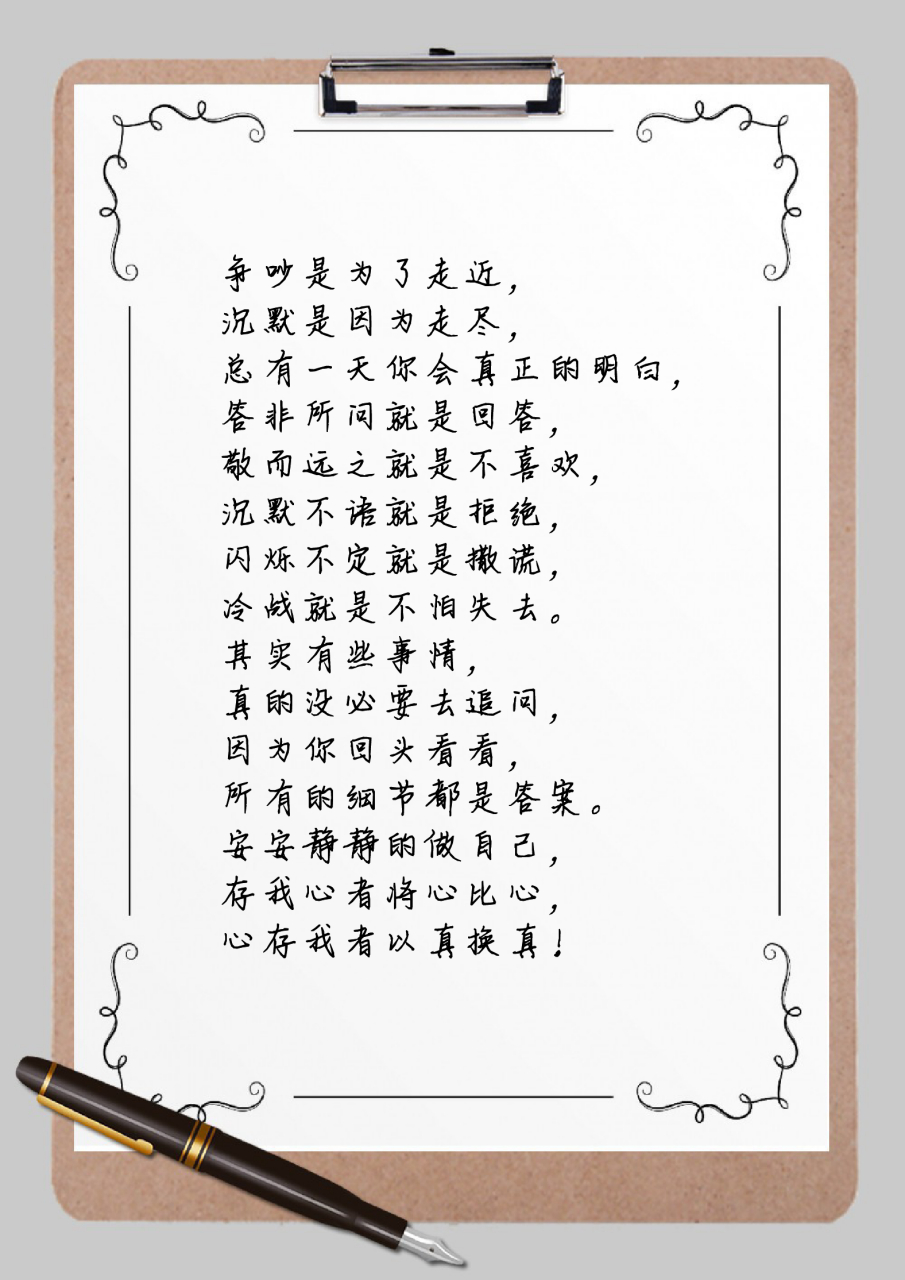 争吵是为了走近，
沉默是因为走尽，
总有一天你会真正的明白，
答非所问就是回答，
敬而远之就是不喜欢，
沉默不语就是拒绝，
闪烁不定就是撒谎，
冷战就是不怕失去。
其实有些事情，
真的没必要去追问，
因为你回头看看，
所有的细节都是答案。
安安静静的做自己，
存我心者将心比心，
心存我者以真换真！